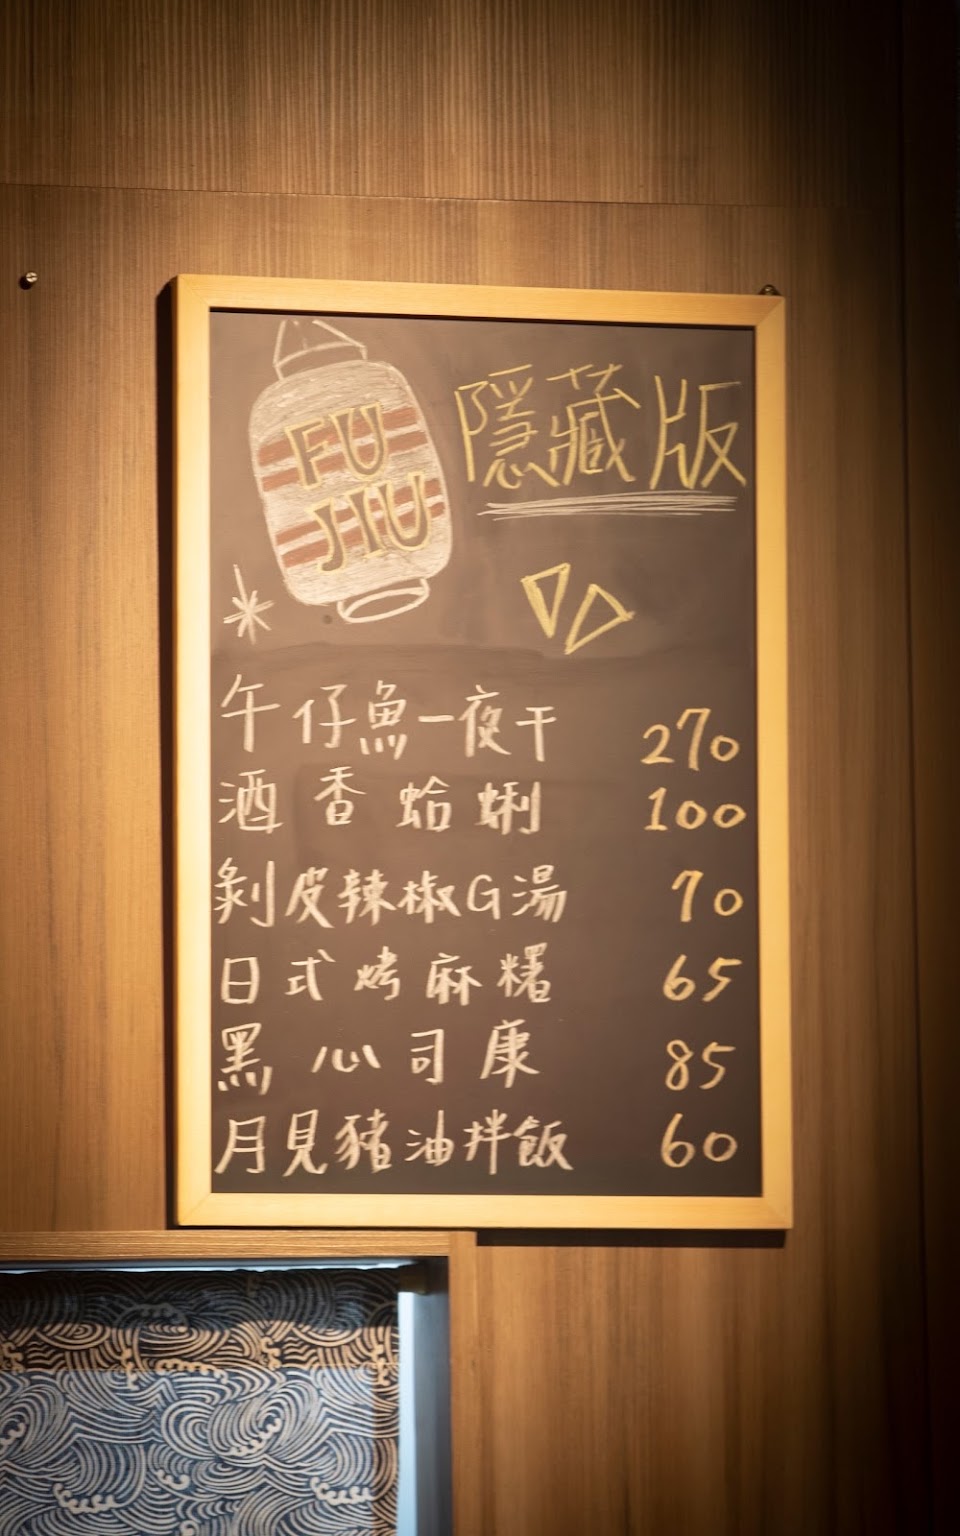 FU
JIU
隱藏版
午仔魚一夜干 270
酒香蛤蜊 100
剝皮辣椒G湯 70
日式烤麻糬 65
黑心司康 85
月見豬油拌飯 60